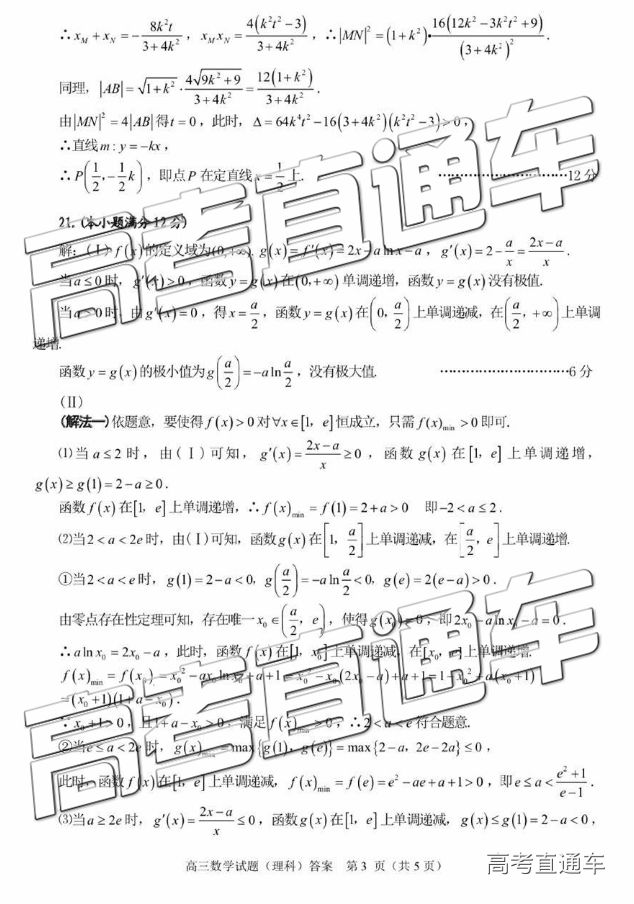 ∴ x_M + x_N = -8k²t/(3+4k²), x_M x_N = 4(k²t²-3)/(3+4k²), ∴|MN|² = (1+k²)·16(12k²-3k²t²+9)/(3+4k²)².
同理, |AB| = √(1+k²)·4√(9k²+9)/(3+4k²) = 12(1+k²)/(3+4k²).
由|MN|² = 4|AB|得t = 0, 此时, Δ = 64k⁴t²-16(3+4k²)(k²t²-3)>0,
∴直线m: y = -kx,
∴P(1/2, -1/2k), 即点P在定直线x = 1/2上. ……………………12分
21. (本小题满分12分)
解: (Ⅰ) f(x)的定义域为(0,+∞). g(x) = f′(x) = 2x-a ln x-a, g′(x) = 2-a/x = (2x-a)/x.
当a≤0时, g′(x)>0, 函数y = g(x)在(0,+∞)单调递增, 函数y = g(x)没有极值.
当a>0时, 由g′(x) = 0, 得x = a/2, 函数y = g(x)在(0, a/2)上单调递减, 在(a/2, +∞)上单调
递增.
函数y = g(x)的极小值为g(a/2) = -a ln a/2, 没有极大值. ……………………6分
(Ⅱ)
(解法一)依题意, 要使得f(x)>0对∀x∈[1, e]恒成立, 只需f(x)min>0即可.
⑴当a≤2时, 由(Ⅰ)可知, g′(x) = (2x-a)/x ≥0, 函数g(x)在[1, e]上单调递增,
g(x)≥g(1) = 2-a≥0.
函数f(x)在[1, e]上单调递增, ∴f(x)min = f(1) = 2+a>0 即-2<a≤2.
⑵当2<a<2e时, 由(Ⅰ)可知, 函数g(x)在[1, a/2]上单调递减, 在[a/2, e]上单调递增.
①当2<a<e时, g(1) = 2-a<0, g(a/2) = -a ln a/2<0, g(e) = 2(e-a)>0.
由零点存在性定理可知, 存在唯一x₀∈(a/2, e), 使得g(x₀) = 0, 即2x₀-a ln x₀-a = 0.
∴a ln x₀ = 2x₀-a, 此时, 函数f(x)在[1, x₀]上单调递减, 在[x₀, e]上单调递增.
f(x)min = f(x₀) = x₀²-ax₀ ln x₀+a+1 = x₀²-x₀(2x₀-a)+a+1 = 1-x₀²+a(x₀+1)
= (x₀+1)(1+a-x₀).
∵x₀+1>0, 且1+a-x₀>0, 满足f(x)min>0, ∴2<a<e符合题意.
②当e≤a<2e时, g(x)max = max{g(1), g(e)} = max{2-a, 2e-2a}≤0,
此时, 函数f(x)在[1, e]上单调递减, f(x)min = f(e) = e²-ae+a+1>0, 即e≤a<(e²+1)/(e-1).
⑶当a≥2e时, g′(x) = (2x-a)/x ≤0, 函数g(x)在[1, e]上单调递减, g(x)≤g(1) = 2-a<0,
高三数学试题（理科）答案 第3 页（共5页）
高考直通车
高考直通车
高考直通车